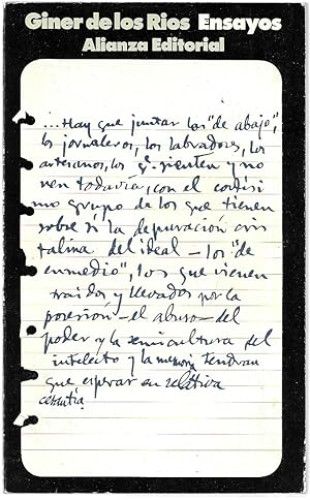 Giner de los Rios Ensayos
Alianza Editorial
...Hay que juntar los "de abajo",
los jornaleros, los labradores, los
artesanos, los q. sienten y no
ven todavía, con el cortísi
mo grupo de los que tienen
sobre sí la depuración cris
talina del ideal — los "de
enmedio", los que vienen
traidos y llevados por la
posesión — el abuso — del
poder y la semicultura del
intelecto y la memoria tendran
que esperar en relativa
cesantía